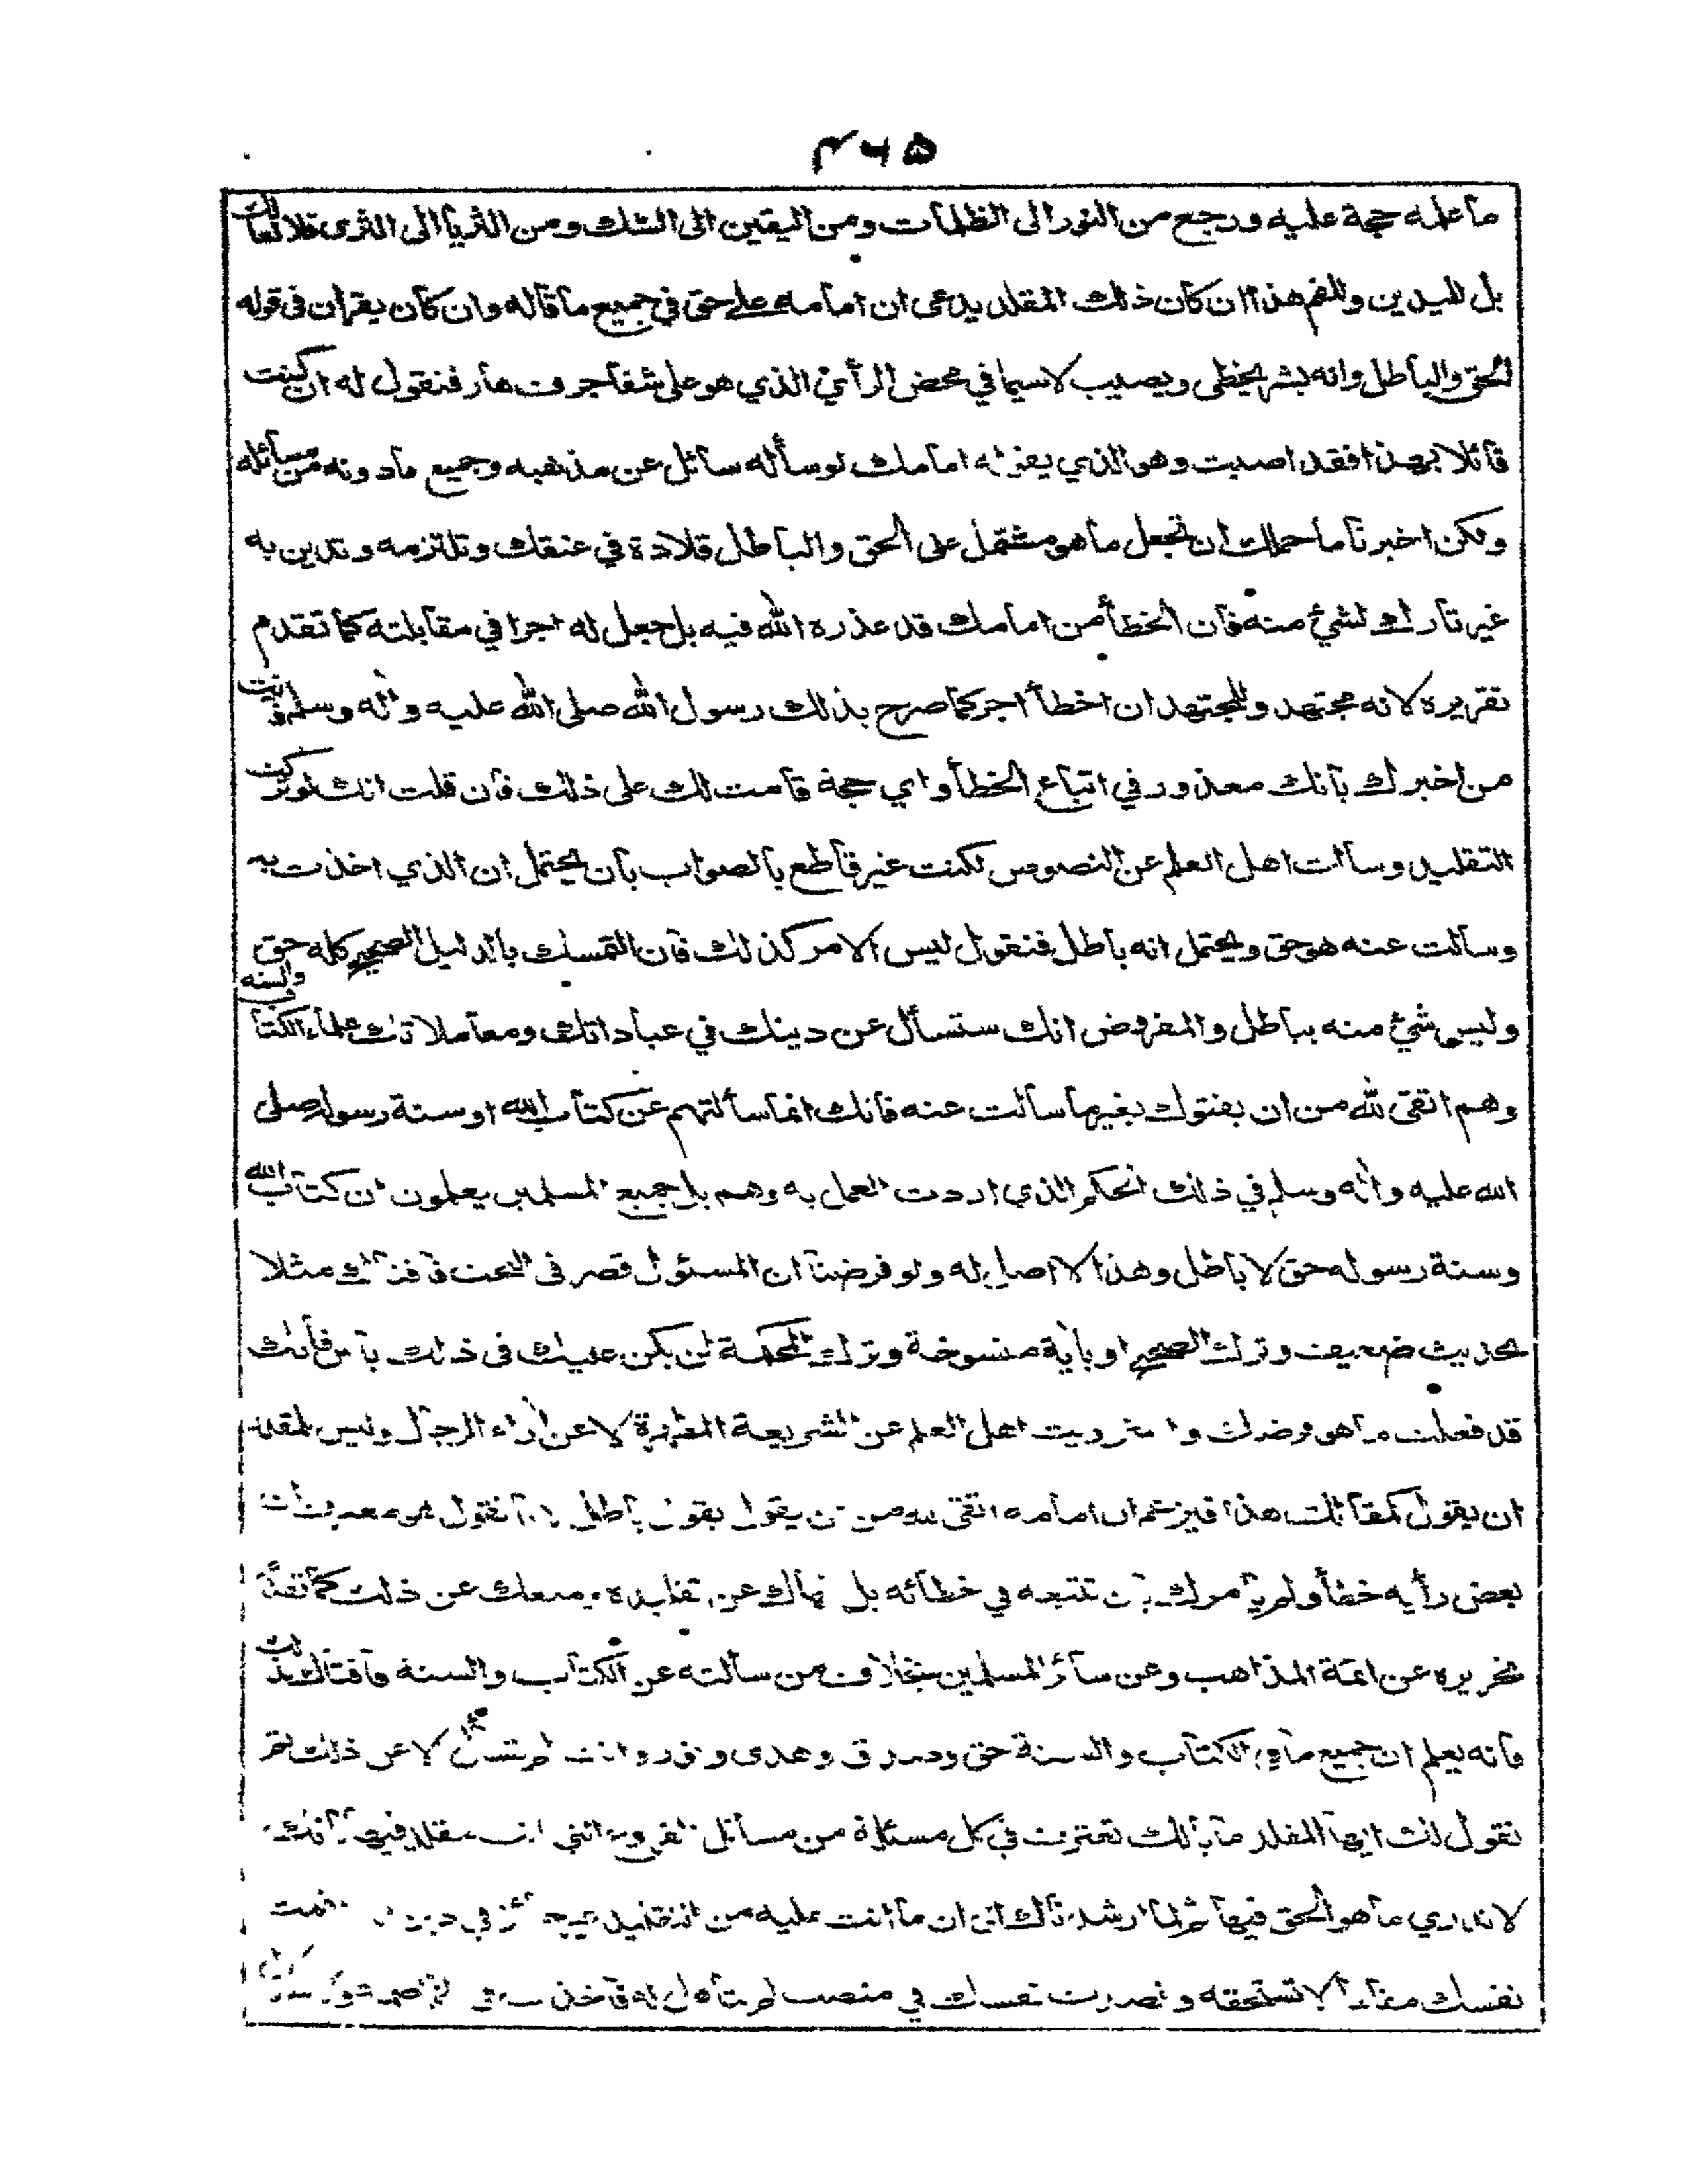 ۴۶۵
ما علمه حجة عليه ورجع من النور الى الظلمات ومن اليقين الى الشك ومن الثريا الى الثرى فلا لعا لك
بل لليدين وللفم هذا ان كان ذلك المقلد يدعى ان امامه على حق في جميع ما قاله وان كان يقر ان في قوله
الحق والباطل وانه بشر يخطى ويصيب لاسيما في محض الرأي الذي هو على شفا جرف هار فنقول له ان كنت
قائلا بهذا فقد اصبت وهو الذي يقوله امامك لو سأله سائل عن مذهبه وجميع ما دونه من مسائله
ولكن اخبرنا ما حملك ان تجعل ما هو مشتمل على الحق والباطل قلادة في عنقك وتلتزمه وتدين به
غير تارك لشئ منه فان الخطأ من امامك قد عذره الله فيه بل جعل له اجرا في مقابلته كما تقدم
تقريره لانه مجتهد وللمجتهد ان اخطأ اجر كما صرح بذلك رسول الله صلى الله عليه وآله وسلم فانت
من اخبرك بانك معذور في اتباع الخطأ واي حجة قامت لك على ذلك فان قلت انك لو تركت
التقليد وسألت اهل العلم عن النصوص لكنت غير قاطع بالصواب بان يحتمل ان الذي اخذت به
وسألت عنه هو حق ويحتمل انه باطل فنقول ليس الامر كذلك فان التمسك بالدليل الصحيح كله حق
وليس شئ منه بباطل والمفروض انك ستسأل عن دينك في عباداتك ومعاملاتك علماء الكتاب والسنة
وهم اتقى لله من ان يفتوك بغير ما سألت عنه فانك انما سألتهم عن كتاب الله او سنة رسوله صلى
الله عليه وآله وسلم في ذلك الحكم الذي اردت العمل به وهم بل جميع المسلمين يعلمون ان كتاب الله
وسنة رسوله حق لا باطل وهذا لا اصل له ولو فرضنا ان المسئول قصر في البحث فافتاك مثلا
بحديث ضعيف وترك الصحيح او بآية منسوخة وترك المحكمة لن يكن عليك في ذلك بأس فانك
قد فعلت ما هو فرضك واسترويت اهل العلم عن الشريعة المطهرة لا عن آراء الرجال وليس لمقلد
ان يقول كمقالتك هذا فيزعم ان امامه اتقى لله من ان يقول بقول باطل لانا نقول هو معترف ان
بعض رأيه خطأ ولم يأمرك بان تتبعه في خطائه بل نهاك عن تقليده ومنعك عن ذلك كما تقدم
تحريره عن ائمة المذاهب وعن سائر المسلمين بخلاف من سألته عن الكتاب والسنة فافتاك بذلك
فانه يعلم ان جميع ما في الكتاب والسنة حق وصدق وهدى ونور وانت لم تسأل الا عن ذلك ثم
نقول لك ايها المقلد ما بالك تعترف في كل مسئلة من مسائل الفروع التي انت مقلد فيها بانك
لا تدري ما هو الحق فيها ثم لما ارشدناك الى ان ما انت عليه من التقليد غير جائز في دين الله اقمت
نفسك مقاما لا تستحقه ونصبت نفسك في منصب لم تتأهل له فاخذت